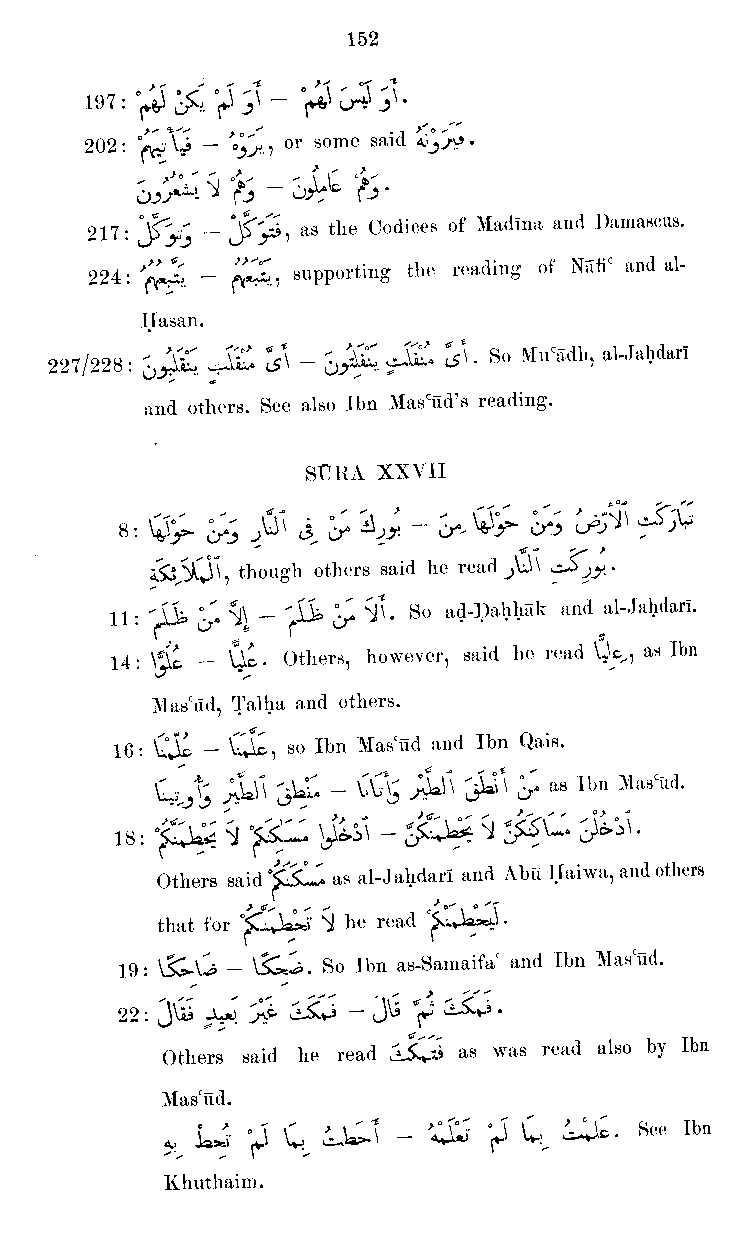 152
197: أَوَ لَمْ يَكُنْ لَهُمْ — أَوَ لَيْسَ لَهُمْ.
202: فَيَأْتِيَهُمْ — يَرَوْهُ, or some said فَيَرَوْنَهُ.
وَهُمْ لَا يَشْعُرُونَ — وَهُمْ عَامِلُونَ.
217: وَتَوَكَّلْ — فَتَوَكَّلْ, as the Codices of Madīna and Damascus.
224: يَتَّبِعُهُمْ — يَتْبَعُهُمْ, supporting the reading of Nāfiʿ and al-
Ḥasan.
227/228: أَىَّ مُنْقَلَبٍ يَنْقَلِبُونَ — أَىَّ مُنْفَلَتٍ يَنْفَلِتُونَ. So Muʿādh, al-Jaḥdarī
and others. See also Ibn Masʿūd's reading.
SŪRA XXVII
8: بُورِكَ مَنْ فِى ٱلنَّارِ وَمَنْ حَوْلَهَا — تَبَارَكَتِ ٱلْأَرْضُ وَمَنْ حَوْلَهَا مِنَ
ٱلْمَلَائِكَةِ, though others said he read بُورِكَتِ ٱلنَّار.
11: إِلَّا مَنْ ظَلَمَ — أَلَا مَنْ ظَلَمَ. So aḍ-Ḍaḥḥāk and al-Jaḥdarī.
14: عُلُوًّا — عُلِيًّا. Others, however, said he read عِلِيًّا, as Ibn
Masʿūd, Ṭalḥa and others.
16: عُلِّمْنَا — عَلَّمَنَا, so Ibn Masʿūd and Ibn Qais.
مَنْطِقَ ٱلطَّيْرِ وَأُوتِينَا — مَنْ أَنْطَقَ ٱلطَّيْرَ وَأَتَانَا as Ibn Masʿūd.
18: ٱدْخُلُوا مَسَاكِنَكُمْ لَا يَحْطِمَنَّكُمْ — ٱدْخُلْنَ مَسَاكِنَكُنَّ لَا يَحْطِمَنْكُنَّ.
Others said مَسْكَنَكُمْ as al-Jaḥdarī and Abū Ḥaiwa, and others
that for لَا تَحْطِمَنَّكُمْ he read لَيَحْطِمَنْكُمْ.
19: ضَاحِكًا — ضَحِكًا. So Ibn as-Samaifaʿ and Ibn Masʿūd.
22: فَمَكَثَ غَيْرَ بَعِيدٍ فَقَالَ — فَمَكَثَ ثُمَّ قَالَ.
Others said he read فَتَمَكَّثَ as was read also by Ibn
Masʿūd.
أَحَطْتُ بِمَا لَمْ تُحِطْ بِهِ — عَلِمْتُ بِمَا لَمْ تَعْلَمْهُ. See Ibn
Khuthaim.